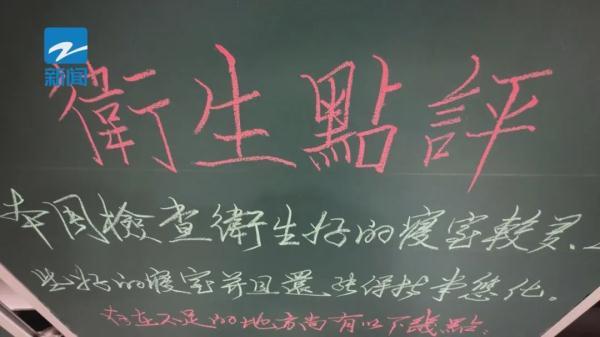 新闻
衛生點評
本周檢查衛生好的寢室較多、
些好的寢室并且還能保持常態化。
存在不足的地方尚有以下幾點